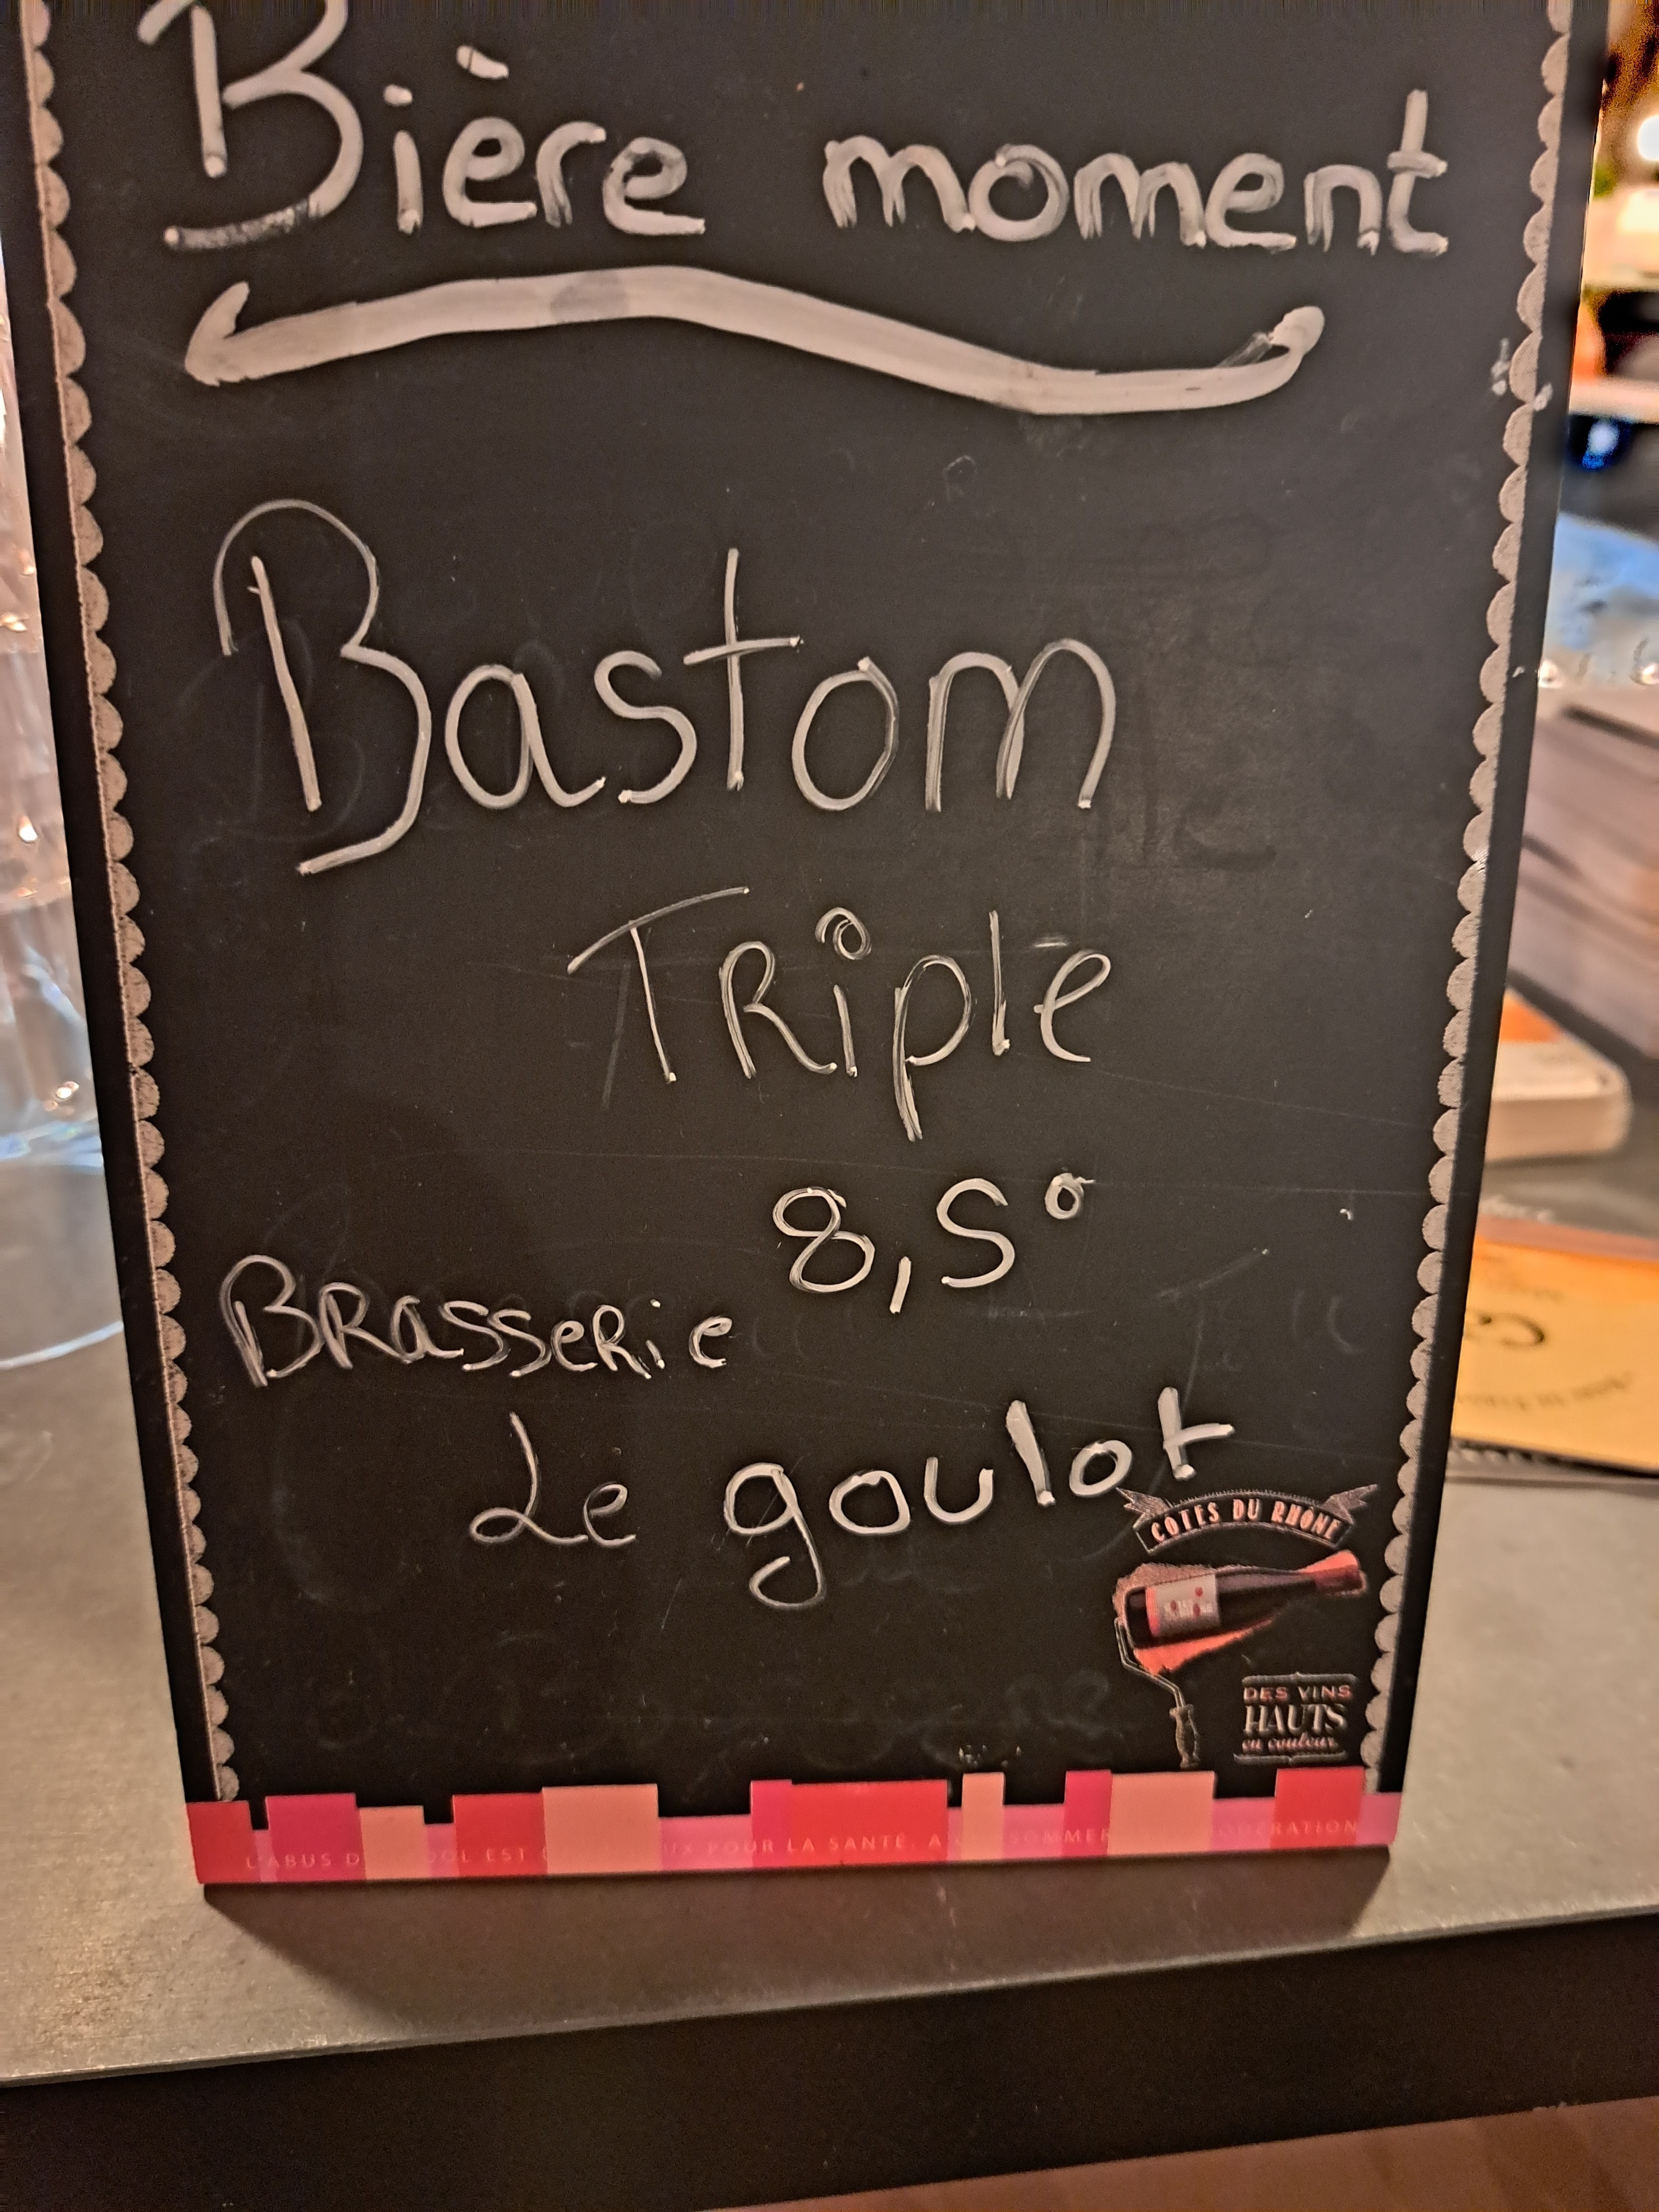 Bière moment
Bastom
TRiple
8,5°
BRasseRie
Le goulot
COTES DU RHÔNE
DES VINS
HAUTS
en couleur
L'ABUS D OL EST UX POUR LA SANTÉ. A SOMMER ODÉRATION